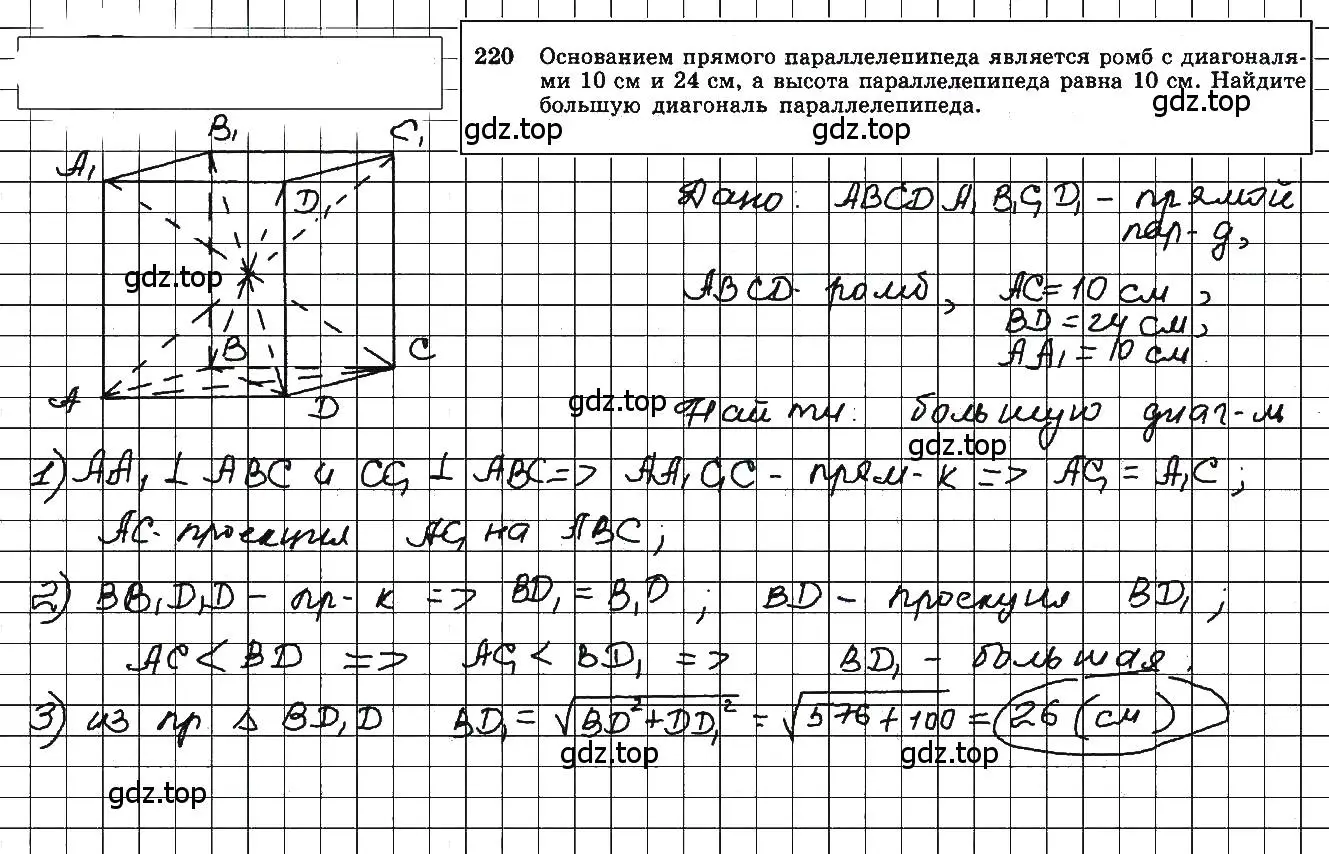 220 Основанием прямого параллелепипеда является ромб с диагоналя-
ми 10 см и 24 см, а высота параллелепипеда равна 10 см. Найдите
большую диагональ параллелепипеда.
gdz.top
gdz.top gdz.top
B₁ C₁
A₁
D₁
gdz.top
B C
A D
Дано: ABCDA₁B₁C₁D₁ - прямой
пар-д,
ABCD - ромб, AC = 10 см,
BD = 24 см,
AA₁ = 10 см
gdz.top
Найти: большую диаг-ль
gdz.top
1) AA₁ ⊥ ABC и CC₁ ⊥ ABC => AA₁C₁C - прям-к => AC₁ = A₁C;
AC - проекция AC₁ на ABC;
2) BB₁D₁D - пр-к => BD₁ = B₁D; BD - проекция BD₁;
AC < BD => AC₁ < BD₁ => BD₁ - большая.
3) из пр Δ BD₁D BD₁ = √(BD²+DD₁²) = √(576+100) = 26 (см)
gdz.top gdz.top
gdz.top